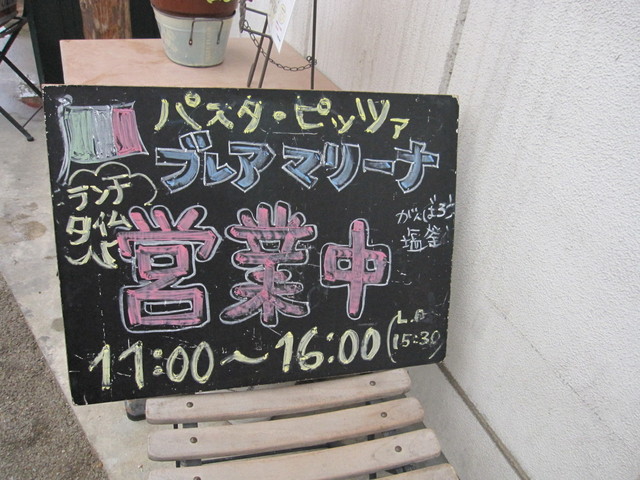 パスタ・ピッツァ
ブレアマリーナ
ランチ
タイム
がんばろう
塩釜
営業中
11:00〜16:00
(L.O
15:30)